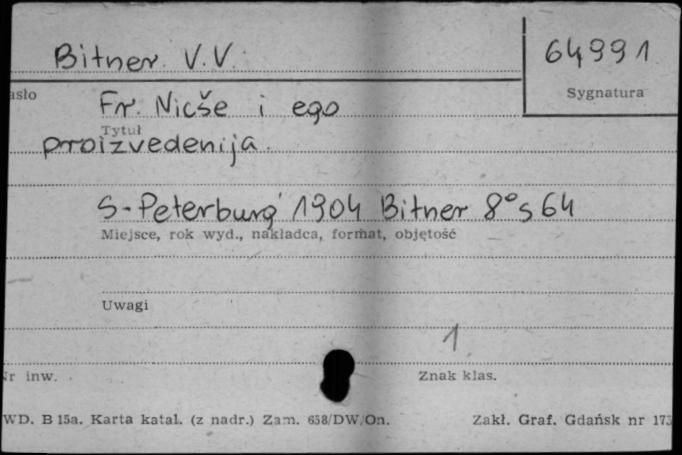 Bitner V.V. 64991
asło Sygnatura
Fr. Nicše i ego
Tytuł
proizvedenija.
S-Peterburg 1904 Bitner 8° s 64
Miejsce, rok wyd., nakładca, format, objętość
Uwagi
1
Nr inw. Znak klas.
WD. B 15a. Karta katal. (z nadr.) Zam. 658/DW/On. Zakł. Graf. Gdańsk nr 173